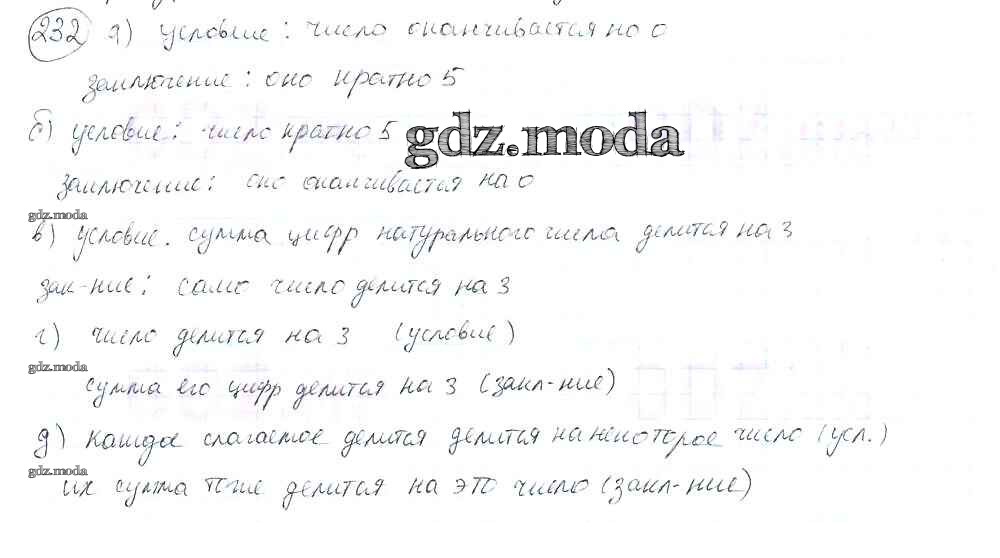 232 а) условие: число оканчивается на 0
заключение: оно кратно 5
б) условие: число кратно 5
gdz.moda
заключение: оно оканчивается на 0
gdz.moda
в) условие. сумма цифр натурального числа делится на 3
зак-ние: само число делится на 3
г) число делится на 3 (условие)
gdz.moda
сумма его цифр делится на 3 (закл-ние)
д) каждое слагаемое делится делится на некоторое число (усл.)
gdz.moda
их сумма тоже делится на это число (закл-ние)